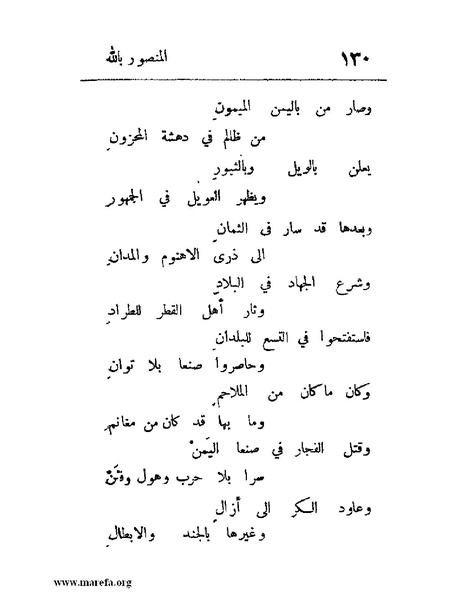 ١٣٠ المنصور بالله
وصار من باليمن الميموتِ
من ظالم في دهشة المحزونِ
يعلن بالويل وبالثبورِ
ويظهر العويل في الجمهورِ
وبعدها قد سار في الثمانِ
الى ذرى الاهنوم والمدانِ
وشرع الجهاد في البلادِ
وثار أهل القطر للطرادِ
فاستفتحوا في التسع للبلدانِ
وحاصروا صنعا بلا توانِ
وكان ماكان من الملاحمِ
وما بها قد كان من مغانمِ
وقتل الفجار في صنعا اليَمنْ
سرا بلا حرب وهول وفتَنْ
وعاود الكر الى أزالِ
وغيرها بالجند والابطالِ
www.marefa.org